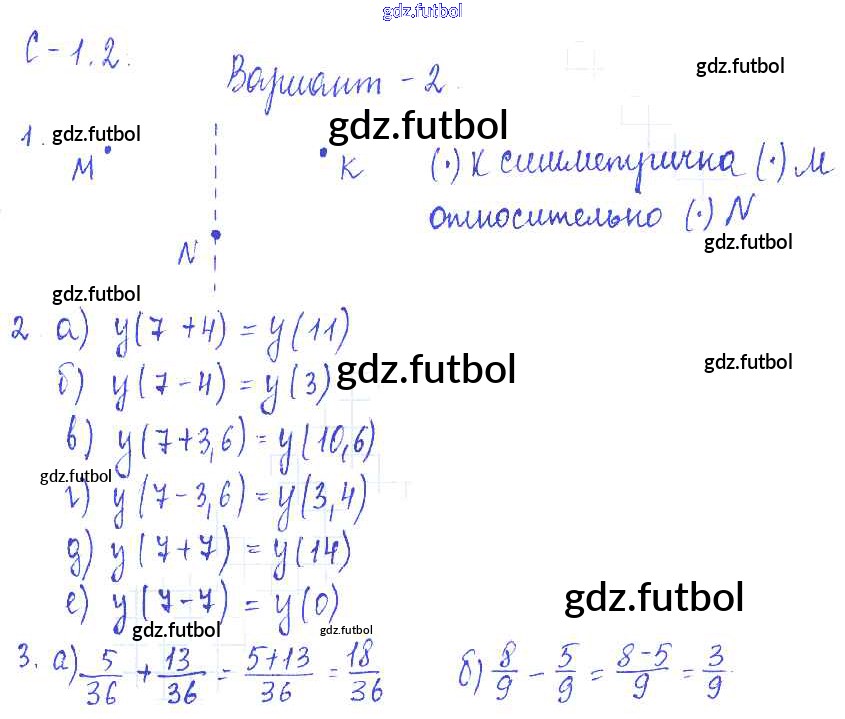 gdz.futbol
С-1.2.
gdz.futbol
Вариант-2.
1. gdz.futbol gdz.futbol
M K (·) K симметрична (·) M
N относительно (·) N
gdz.futbol
gdz.futbol
2 а) y(7+4) = y(11)
б) y(7-4) = y(3) gdz.futbol gdz.futbol
в) y(7+3,6) = y(10,6)
gdz.futbol
г) y(7-3,6) = y(3,4)
д) y(7+7) = y(14)
е) y(7-7) = y(0) gdz.futbol
gdz.futbol gdz.futbol
3. а) 5/36 + 13/36 = 5+13/36 = 18/36 б) 8/9 - 5/9 = 8-5/9 = 3/9